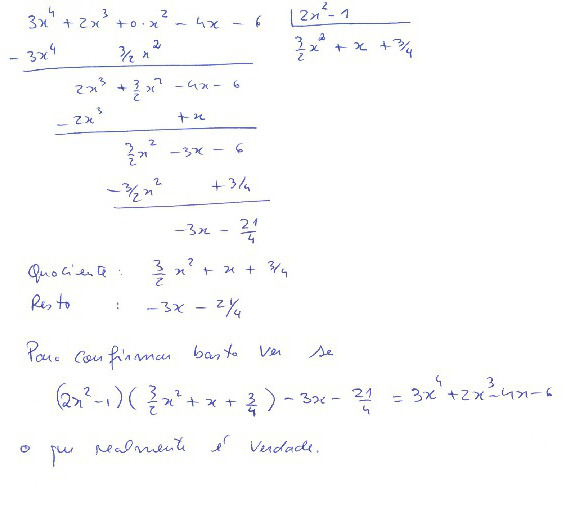 3x⁴ + 2x³ + 0·x² - 4x - 6 | 2x² - 1
- 3x⁴ 3/2 x² 3/2 x² + x + 3/4
2x³ + 3/2 x² - 4x - 6
- 2x³ + x
3/2 x² - 3x - 6
- 3/2 x² + 3/4
-3x - 21/4
Quociente : 3/2 x² + x + 3/4
Resto : -3x - 21/4
Para confirmar basta ver se
(2x² - 1) ( 3/2 x² + x + 3/4 ) - 3x - 21/4 = 3x⁴ + 2x³ - 4x - 6
o que realmente é verdade.